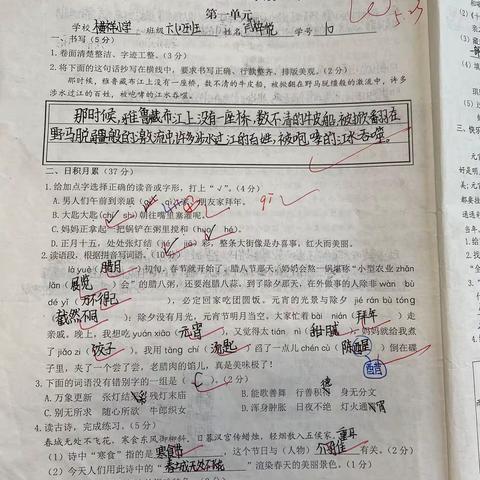 第一单元
学校 横祥小学 班级 六(2)班 姓名 学号 10
一、书写(5分)
1.卷面清楚整洁、字迹工整。(3分)
2.将下面的这句话抄写在横线中,要求书写正确、行款整齐、排版美观。(2分)
那时候,雅鲁藏布江上没有一座桥,数不清的牛皮船,被掀翻在野马脱缰般的激流中,许多
涉水过江的百姓,被咆哮的江水吞噬。
那时候,雅鲁藏布江上没有一座桥,数不清的牛皮船,被掀翻在
野马脱缰般的激流中,许多涉水过江的百姓,被咆哮的江水吞噬。
二、日积月累(37分)
1.给加点字选择正确的读音或字形,打上“√”。(4分)
A.男人们午前到亲戚 朋友家拜年。
B.大匙大匙(chí shi)朝往嘴里塞灌呢。
C.妈妈正拿起一把锅铲在粥里搅和(huo hé)。
D.正月十五,处处张灯结( )彩,整条大街像是办喜事,红火而美丽。
2.读语段,根据拼音写词语。(10分)
là yuè(腊月)初旬,春节就开始了。腊八节那天,奶奶会熬一锅堪称“小型农业 zhǎn
lǎn(展览)会”的腊八粥,还要泡腊八蒜。到了除夕那天,在外做事的人除非 wàn bù
dé yǐ(万不得已),必定回家吃团圆饭。元宵的光景与除夕 jié rán bù tóng
(截然不同):除夕没有月光,元宵节明月当空。大家忙着 bài nián(拜年)走
亲戚。晚上,我想吃 yuán xiāo(元宵),又觉得太 tián nì(甜腻),妈妈就给我煮
了 jiǎo zi(饺子)。我用 tāng chí(汤匙)舀了一点儿 chén cù(陈醋)倒在碟
醋
子里,夹了一个尝了尝,老腊肉的馅儿,真是美味极了!
3.下面的词语没有错别字的一组是(C)。(2分)
A.万象更新 张灯结 残灯末庙 B.能歌善舞 行善积 身无分文
C.别无所求 随心所欲 牛郎织女 D.浑身肿胀 日夜不绝 灯火通 宵
4.读古诗,完成练习。(5分)
春城无处不飞花,寒食东风御柳斜。日暮汉宫传蜡烛,轻烟散入五侯家。
(1)诗中“寒食”指的是 寒食节,这个节日与(人物) 介子推 有关。(2分)
(2)今天人们用此诗中的“春城无处不飞花”渲染春天的美丽景色。(1分)